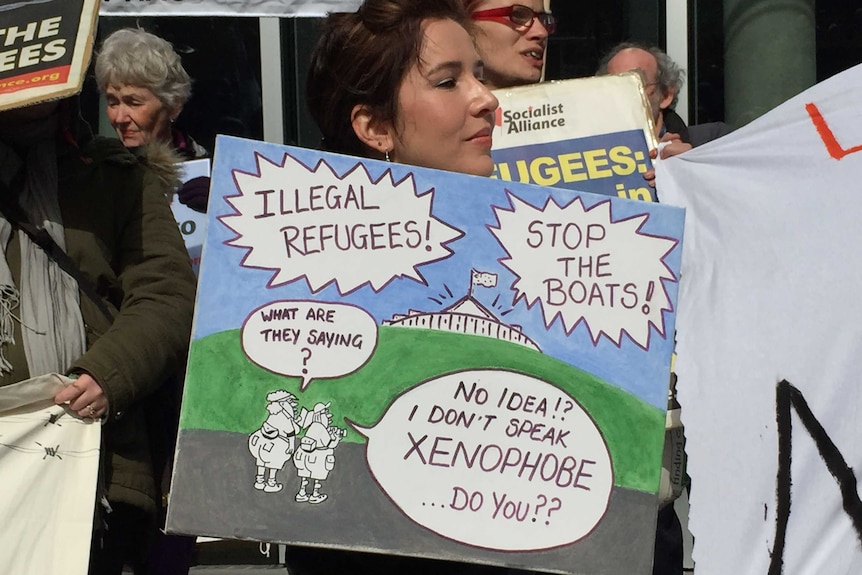 THE
EES
.org
Socialist
Alliance
UGEES:
in
ILLEGAL
REFUGEES!
STOP
THE
BOATS!
WHAT ARE
THEY SAYING
?
NO IDEA!?
I DON'T SPEAK
XENOPHOBE
...DO YOU??